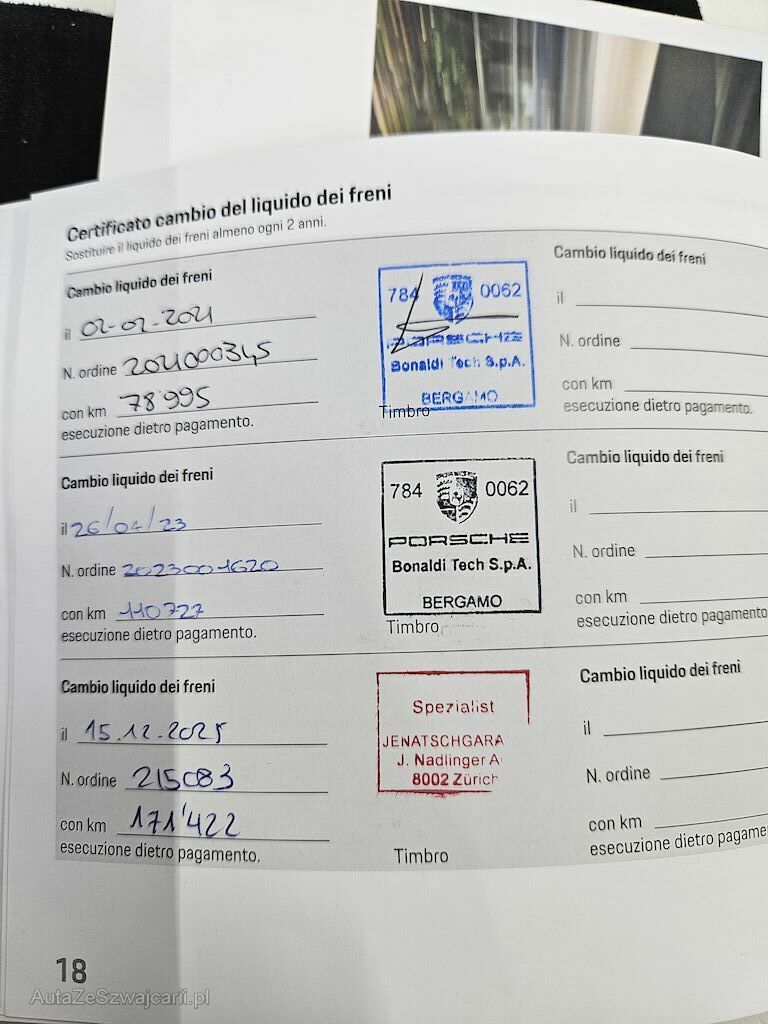 Certificato cambio del liquido dei freni
Sostituire il liquido dei freni almeno ogni 2 anni.
Cambio liquido dei freni
il 02-02-2021
N. ordine 2021000345
con km 78'995
esecuzione dietro pagamento.
784 0062
PORSCHE
Bonaldi Tech S.p.A.
BERGAMO
Timbro
Cambio liquido dei freni
il
N. ordine
con km
esecuzione dietro pagamento.
Cambio liquido dei freni
il 26/04/23
N. ordine 2023001620
con km 110727
esecuzione dietro pagamento.
784 0062
PORSCHE
Bonaldi Tech S.p.A.
BERGAMO
Timbro
Cambio liquido dei freni
il
N. ordine
con km
esecuzione dietro pagamento
Cambio liquido dei freni
il 15.12.2025
N. ordine 215083
con km 171'422
esecuzione dietro pagamento.
Spezialist
JENATSCHGARA
J. Nadlinger A
8002 Zürich
Timbro
Cambio liquido dei freni
il
N. ordine
con km
esecuzione dietro pagame
18
AutaZeSzwajcarii.pl